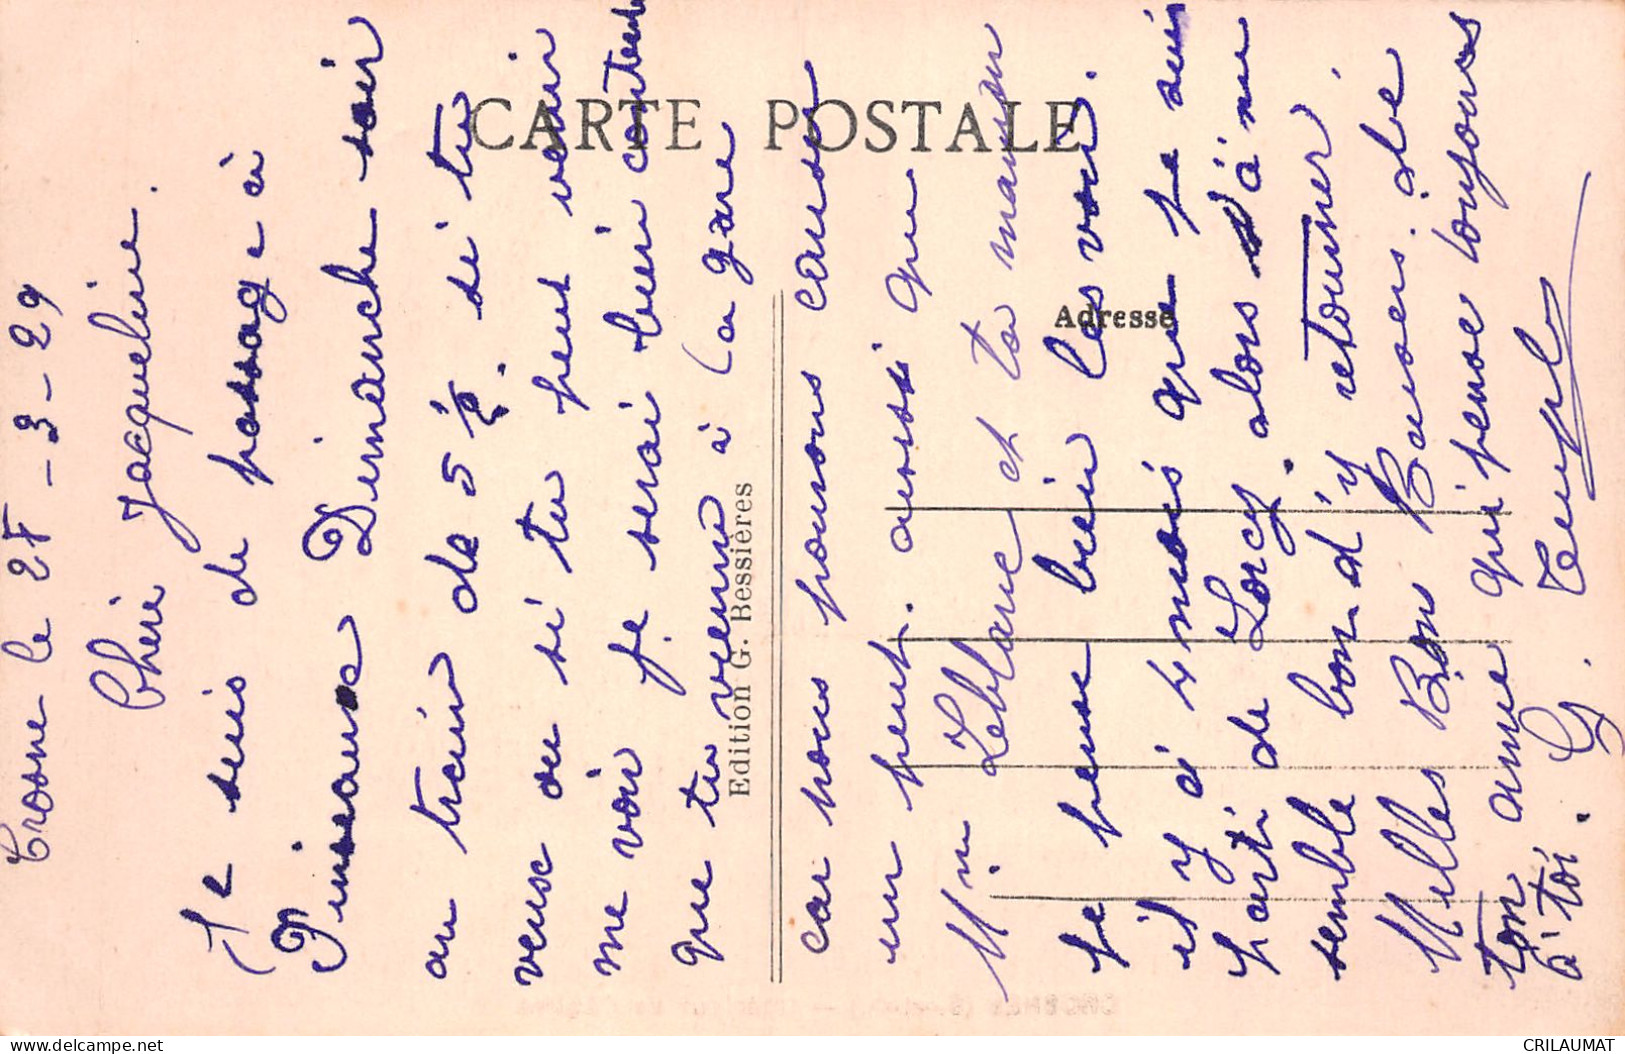 CARTE POSTALE
Adresse
Edition G. Bessières
Crosne le 27-3-29
Chérie Jacqueline.
Je suis de passage à
Dimanche soir
au train de 5 h ½. si tu
veux ou si tu peut venir
me voir je serai bien contente
que tu venue à la gare
car nous pourons causer
un peut. aussi que
Mr Leblanc et ta maman
je pense bien les voir.
il y a 4 mois que je suis
parti de Lorcy. alors
semble bon d'y retourner
Milles Bon Baisers. de
ton amie qui pense toujours
à toi. G.
CRILAUMAT
delcampe.net